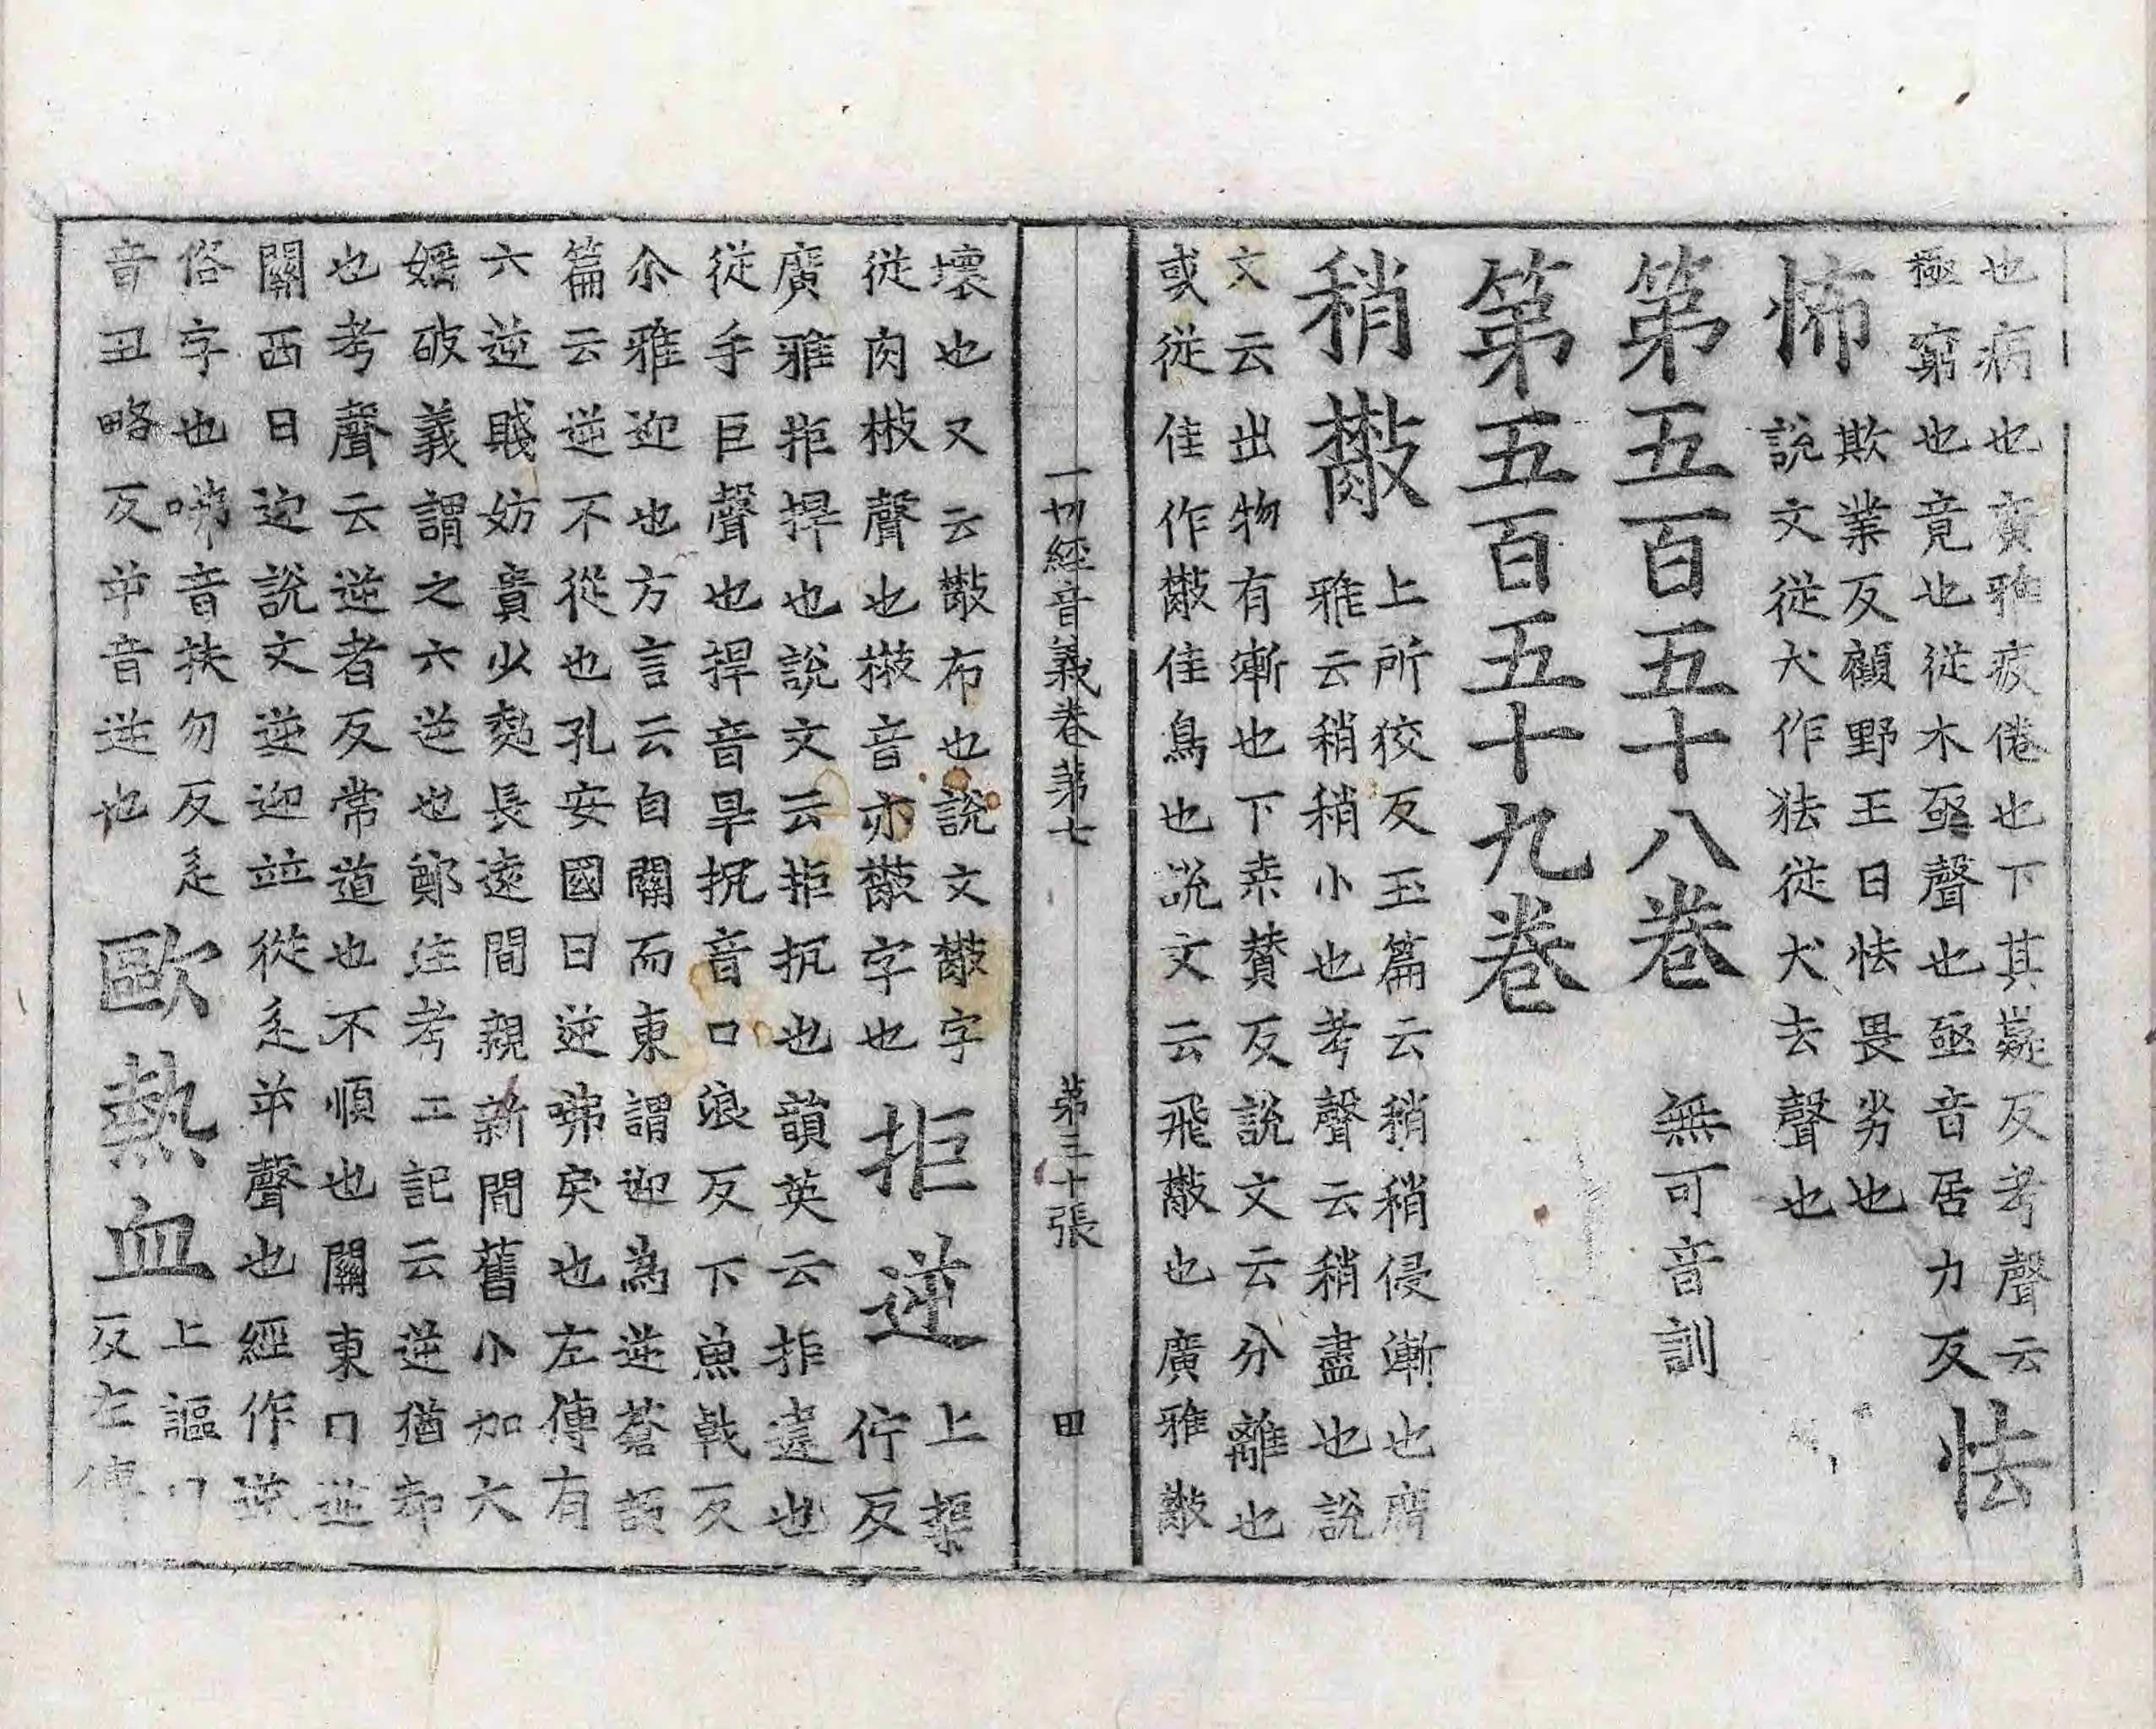 也病也廣雅疲倦也下其凝反考聲云
極窮也竟也從木亟聲也亟音居力反 怯
怖 欺業反顧野王曰怯畏劣也
說文從犬作狯從犬去聲也
第五百五十八卷
第五百五十九卷 無可音訓
稍㪚 上所狡反玉篇云稍稍侵漸也廣
雅云稍稍小也考聲云稍盡也說
文云出物有漸也下桒賛反說文云分離也
或從隹作㪚隹鳥也說文云飛㪚也廣雅㪚
一切經音義卷第七 第三十張 田
壞也又云㪚布也說文㪚字
從肉㪔聲也㪔音亦㪚字也 拒逆 上渠佇反
廣雅拒捍也說文云拒扞也韻英云拒違也
從手巨聲也捍音旱抗音口浪反下魚戟反
尒雅迎也方言云自關而東謂迎為逆蒼頡
篇云逆不從也孔安國曰逆咈戾也左傳有
六逆賤妨貴少凌長遠間親新間舊小加大
婬破義謂之六逆也鄭注考工記云逆猶却
也考聲云逆者反常道也不順也關東曰逆
關西曰迎說文逆迎並從辵屰聲也經作逆
俗字也咈音扶勿反辵
音丑略反屰音逆也 歐熱血 上謳口
反左傳